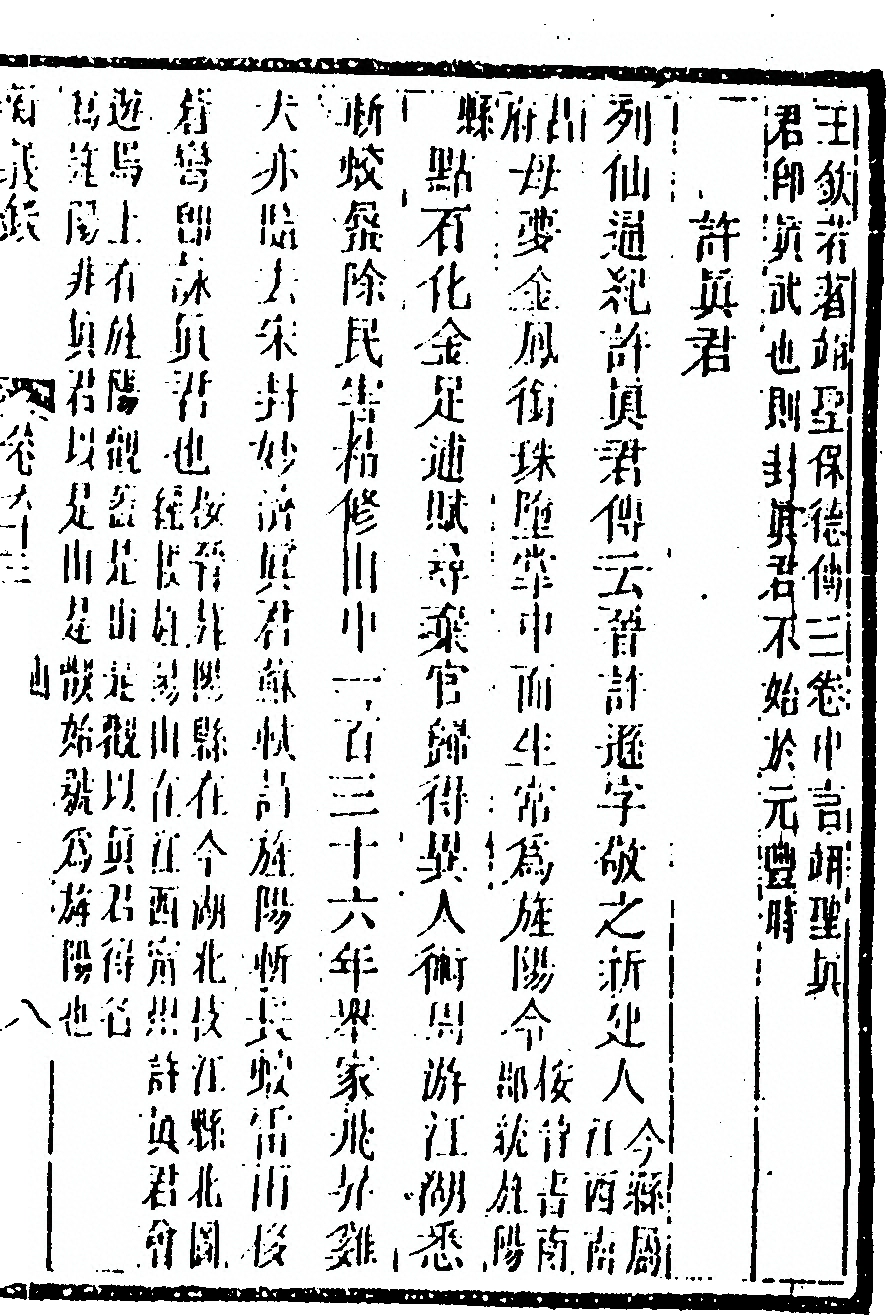 王欽若著翊聖保德傳三卷中言翊聖真
君卽真武也則封真君不始於元豐時
許真君
列仙通紀許真君傳云晉許遜字敬之新處人
今縣屬
江西南
昌
府
母夢金鳳銜珠墮掌中而生常爲旌陽令
按晉書南
郡統旌陽
縣
點石化金足逋賦尋棄官歸得異人術周游江湖悉
斬蛟蜃除民害精修山中一百三十六年舉家飛昇雞
犬亦隨去宋封妙濟真君蘇軾詩旌陽斬長蛟雷雨
卽詠真君也
按晉旌陽縣在今湖北枝江縣北圖
經旌陽山在江西甯州許真君曾
遊焉上有旌陽觀蓋是山是觀以真君得名
爲旌陽非真君以是山是觀始號爲旌陽也
卷六十三
八